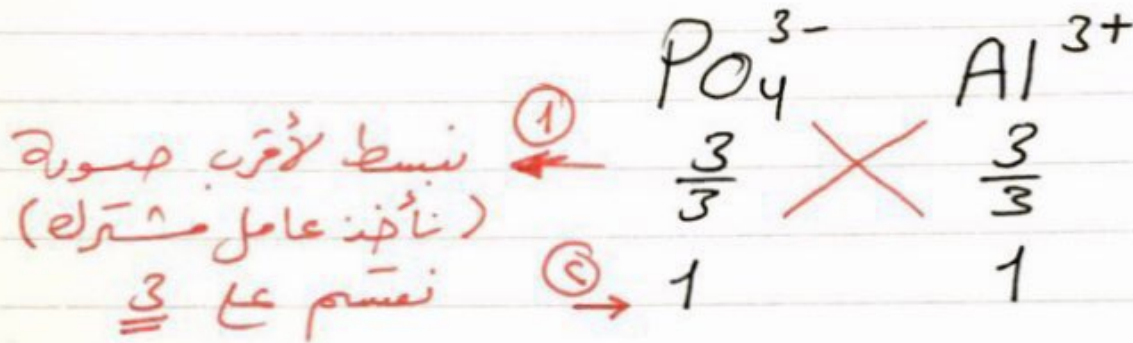 PO₄³⁻ Al³⁺
① نبسط لأقرب صورة
3/3 3/3
(نأخذ عامل مشترك)
② نقسم على 3
1 1